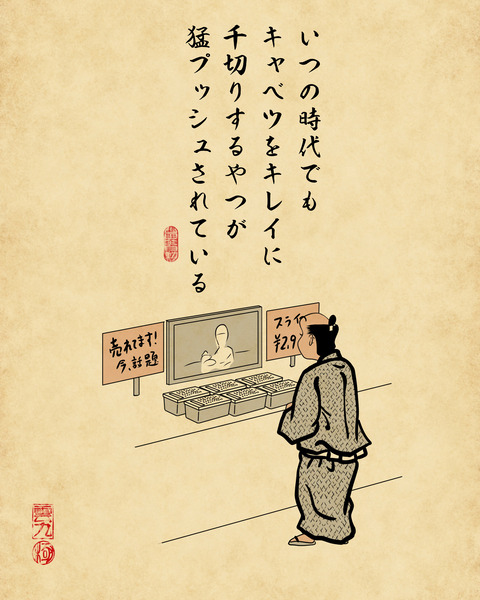 いつの時代でも
キャベツをキレイに
千切りするやつが
猛プッシュされている
売れてます!
今、話題
スライ
¥2,9